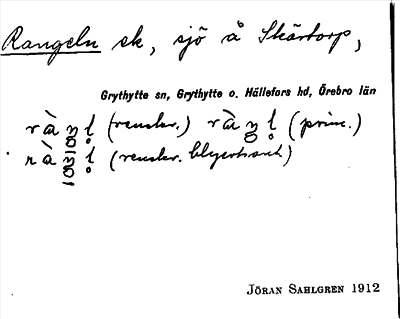 Rangeln sk, sjö å Skårtorp,
Grythytte sn, Grythytte o. Hällefors hd, Örebro län
(renskr.) (prim.)
(renskr. blyertsant)
JÖRAN SAHLGREN 1912